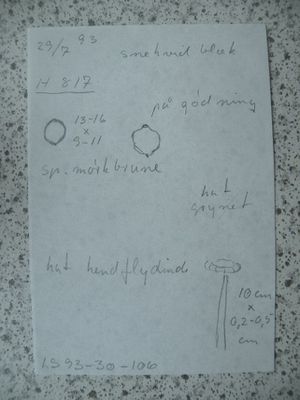 29/7 93
snehvid blæk
H 817
på gødning
13-16
x
9-11
sp. mörkbrune
hat
grynet
hat
10 cm
x
0,2-0,5
cm
LS93-30-106